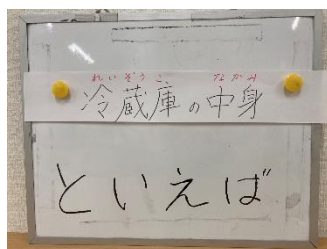 れいぞうこ なかみ
冷蔵庫の中身
といえば